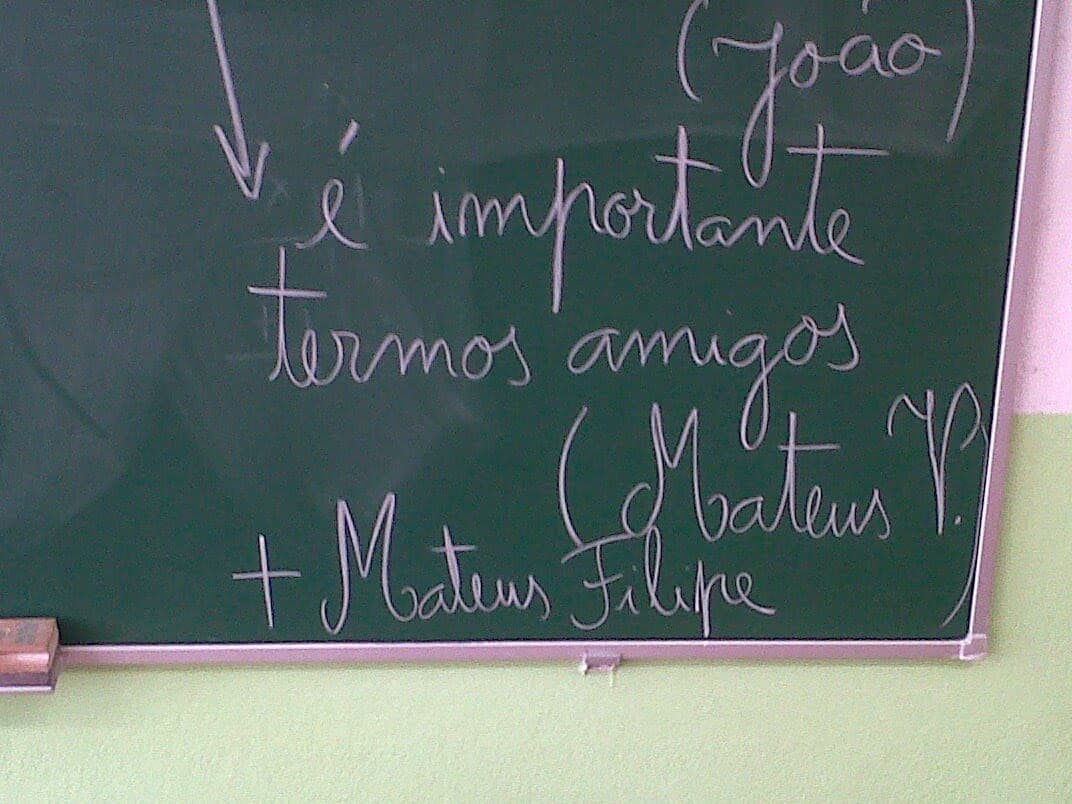 (João)
é importante
termos amigos
(Mateus V.)
+ Mateus Filipe